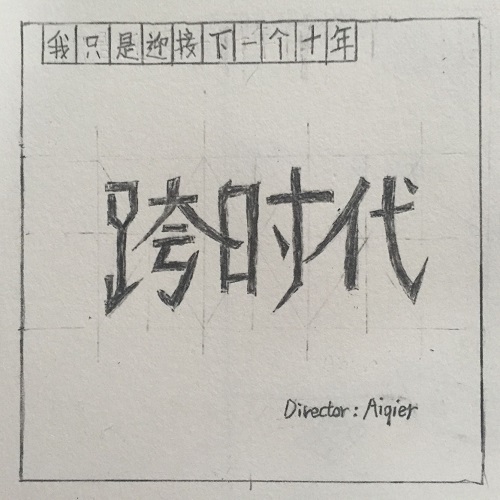 我只是迎接下一个十年
跨时代
Director: Aiqier